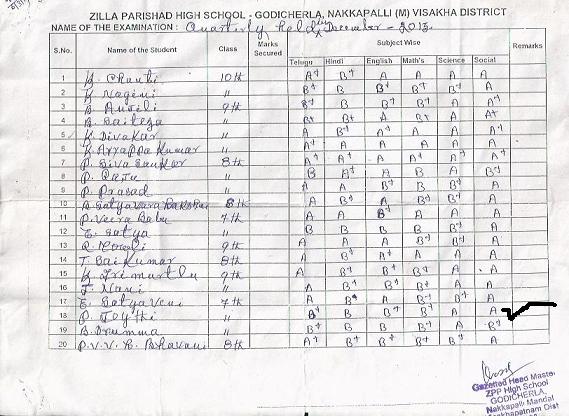 ZILLA PARISHAD HIGH SCHOOL - GODICHERLA, NAKKAPALLI (M) VISAKHA DISTRICT
NAME OF THE EXAMINATION : Quarterly held December - 2013
S.No. Name of the Student Class Marks Secured Subject Wise Remarks
Telugu Hindi English Math's Science Social
1 10th A+ B+ A A A A
2 K. Nagini " B+ B B+ B+ B+ A
3 B. Anjili 9th B+ B B B A A+
4 B. Saiteja " B+ B+ A B+ A A+
5 K. Divakar " A B+ A+ A A A+
6 K. Ayyappa Kumar " A A A A A A
7 P. Siva Sankar 8th A+ A+ A A A+ A+
8 P. Raju " B A+ A B A B+
9 P. Prasad " A A B+ B B A
10 8th A B+ A B+ A A
11 P. Veera Babu 7th A A B+ A A A
12 E. Satya " B B B B A A
13 9th A A A B+ B+ A
14 T. Sai Kumar 8th A A B+ B+ A A
15 9th A B+ B+ B+ A A
16 J. Nani " A B+ A B+ A A
17 E. Satyaveni 7th A B+ A B+ B+ A
18 P. Joythi " B+ B B+ B+ B+ A
19 " B+ B B B A B+
20 P.V.V.B. Bhavani 8th A+ B+ B+ B+ B+ A
Gazetted Head Master
ZPP High School
GODICHERLA,
Nakkapalli Mandal
Visakhapatnam Dist